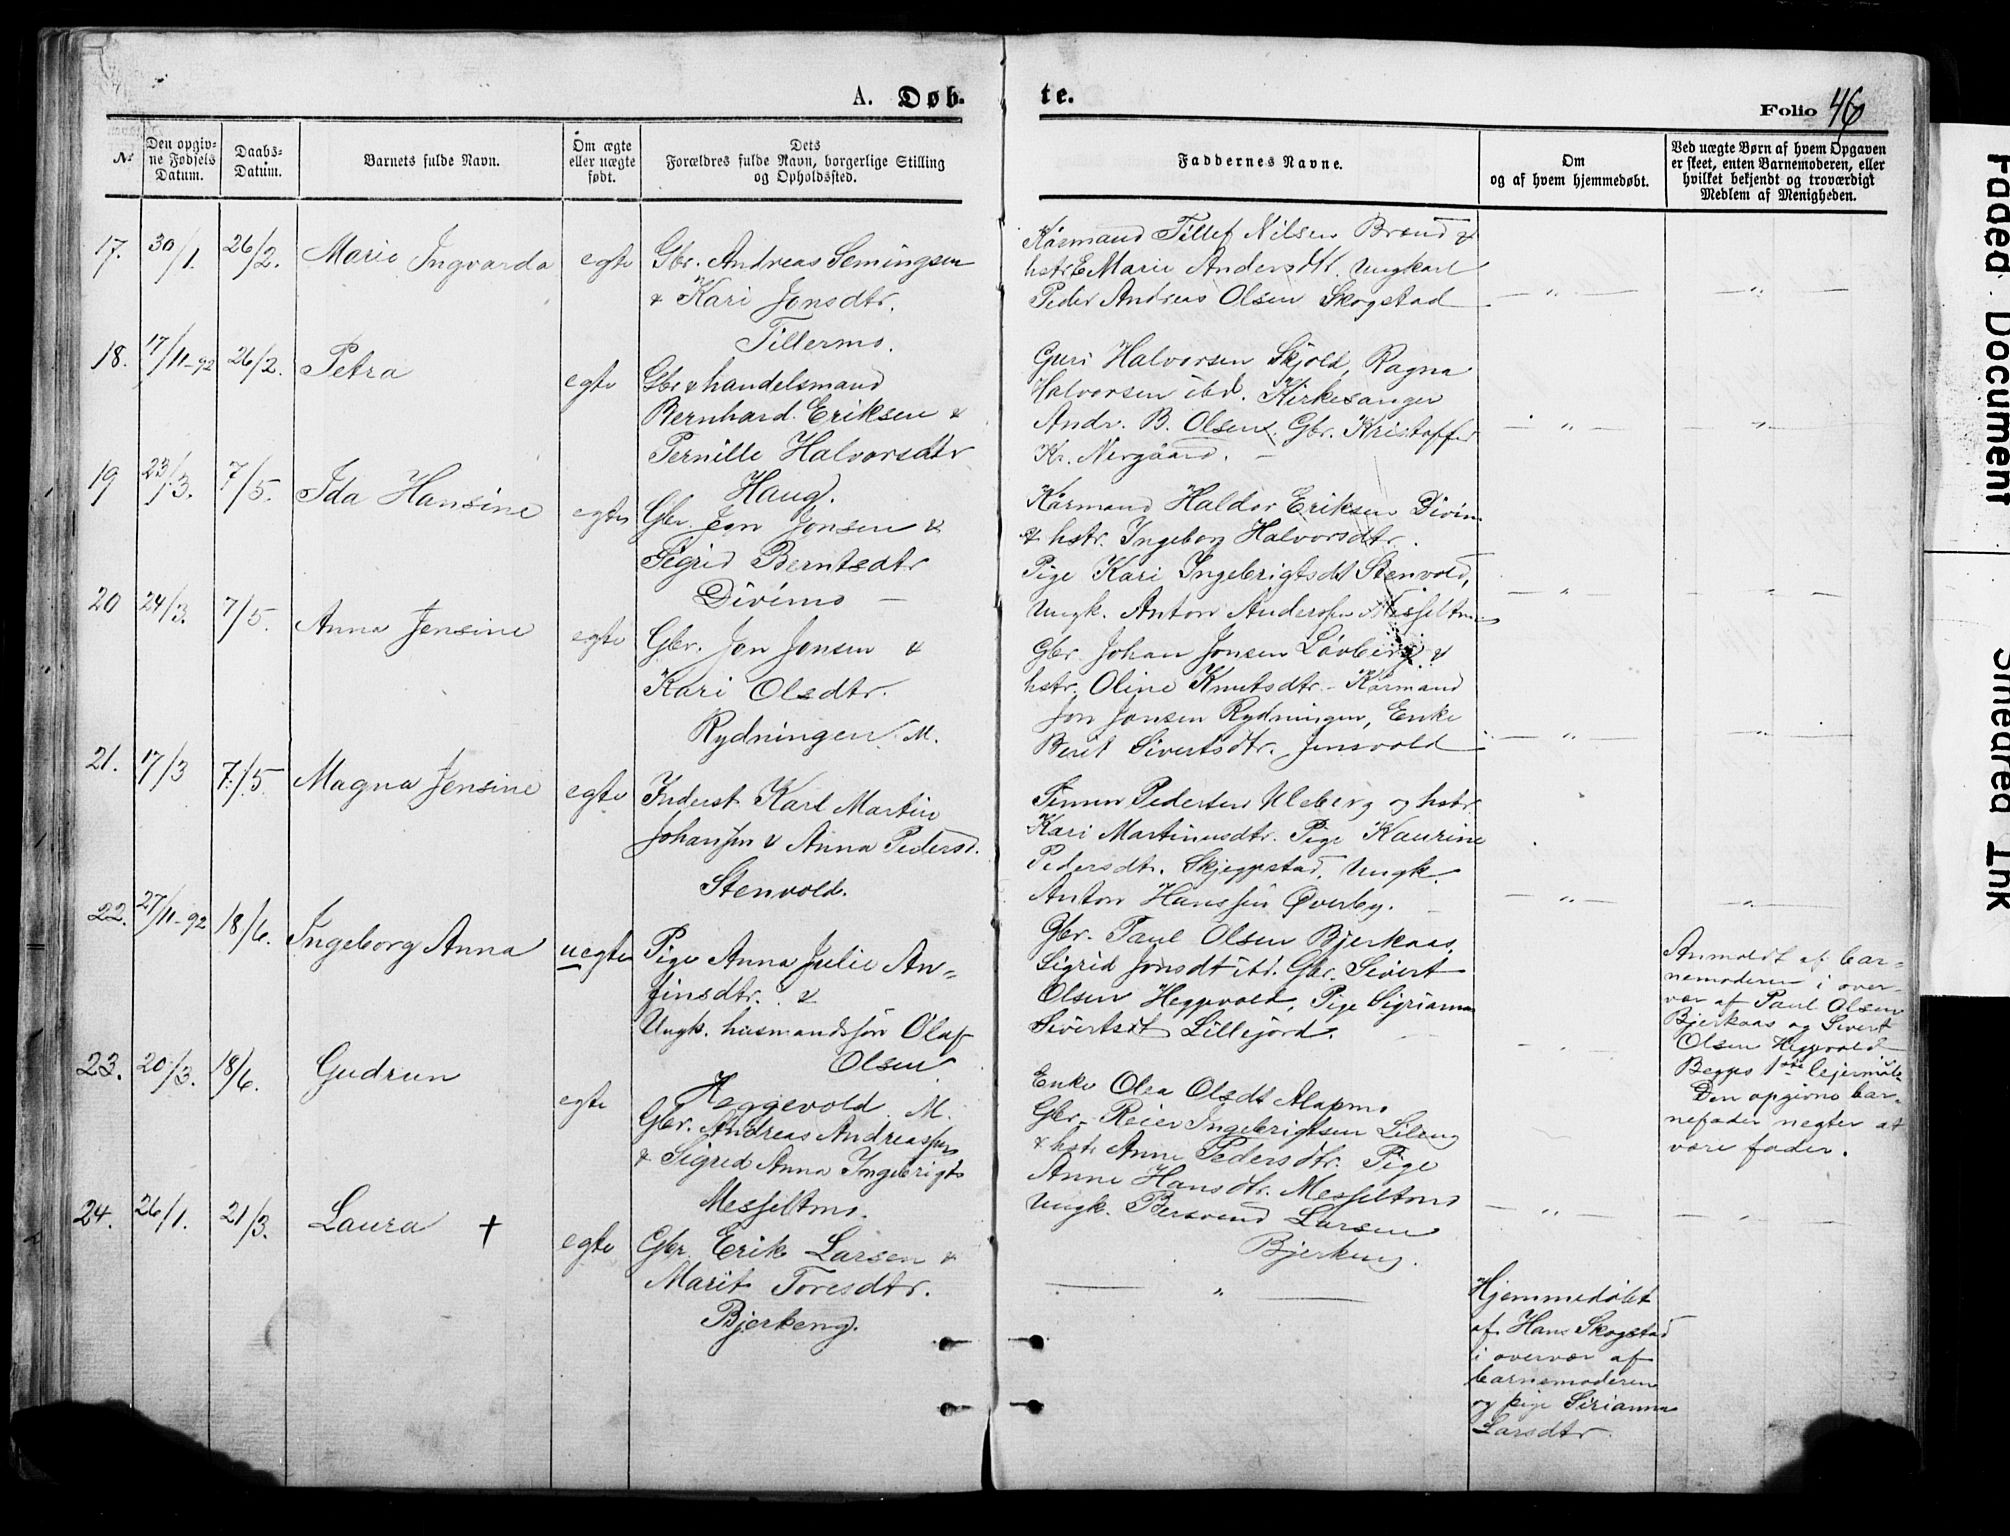 A. Døb-
te.
Folio 46
№
Den opgiv-
ne Fødsels
Datum.
Daabs-
Datum.
Barnets fulde Navn.
Om ægte
eller uægte
født.
Dets
Forældres fulde Navn, borgerlige Stilling
og Opholdssted.
Faddernes Navne.
Om
og af hvem hjemmedøbt.
Ved uægte Børn af hvem Opgaven
er skeet, enten Barnemoderen, eller
hvilket bekjendt og troværdigt
Medlem af Menigheden.
17. 30/1. 26/2. Marie Ingvarda egte
Gbr. Andreas Semingsen
& Kari Jonsdtr.
Tillermo.
Kårmand Tillef Nilsen Brend &
hstr E Marie Andersdtr. Ungkarl
Peder Andreas Olsen Skogstad
— " — — " —
18. 17/11-92 26/2. Petra egte
Gbr & handelsmand
Bernhard Eriksen &
Pernille Halvorsdtr
Haug.
Guri Halvorsen Skjold, Ragna
Halvorsen ibd. Kirkesanger
Andr. B. Olsen. Gbr. Kristoffer
Kr. Nergaard. —
— " — "
19 23/3. 7/5. Ida Hansine egte
Gbr. Jon Jonsen &
Sigrid Berntsdtr
Divimo —
Kårmand Haldor Eriksen Divim
& hstr. Ingeborg Halvorsdtr.
Pige Kari Ingebrigtsdt Stenvold,
Ungk. Anton Anderssen Messeltmo
— " — — " —
20 24/3. 7/5. Anna Jensine egte
Gbr. Jon Jonsen &
Kari Olsdtr.
Rydningen. M.
Gbr. Johan Jonsen Løvberg &
hstr. Oline Knutsdtr — Kårmand
Jon Jonsen Rydningen, Enke
Berit Sivertsdtr. Jensvold
— " — — " —
21. 17/3 7/5 Magna Jensine egte
Inderst Karl Martin
Johanssen & Anna Pedersd.
Stenvold.
Simen Pedersen Uleberg og hstr.
Kari Martinusdtr. Pige Kaurine
Pedersdtr. Skjeggestad, Ungk.
Anton Hanssen Øverby.
— " — — " —
22. 27/11-92 18/6. Ingeborg Anna uegte
Pige Anna Julie An-
finsdtr. &
Ungk. husmandssøn Olaf
Olsen
Heggevold. M.
Gbr. Paul Olsen Bjerkaas,
Sigrid Jonsdt ibd. Gbr. Sivert
Olsen Heggvold, Pige Sigrianna
Sivertsdt Lillejord.
Anmeldt af bar-
nemoderen i over-
vær af Paul Olsen
Bjerkaas og Sivert
Olsen Heggvold
Begges 1ste leiermål.
Den opgivne bar-
nefader negter at
være fader.
23. 20/3. 18/6. Gudrun egte
Gbr. Andreas Andreassen
& Sigrid Anna Ingebrigts
Messeltmo.
Enke Olea Olsdt Alapmo
Gbr. Reier Ingebrigtsen Lileng
& hstr. Anne Pedersdtr. Pige
Anne Hansdtr. Messeltmo
Ungk. Bersvend Larsen
Bjerkeng.
— " — — " —
24. 26/1. 21/3. Laura + egte
Gbr. Erik Larsen &
Marit Toresdtr.
Bjerkeng.
— " —
Hjemmedøbt
af Hans Skogstad
i overvær af
barnemoderen
og pige Sirianna
Larsdtr
Faded Document
Smeared Ink